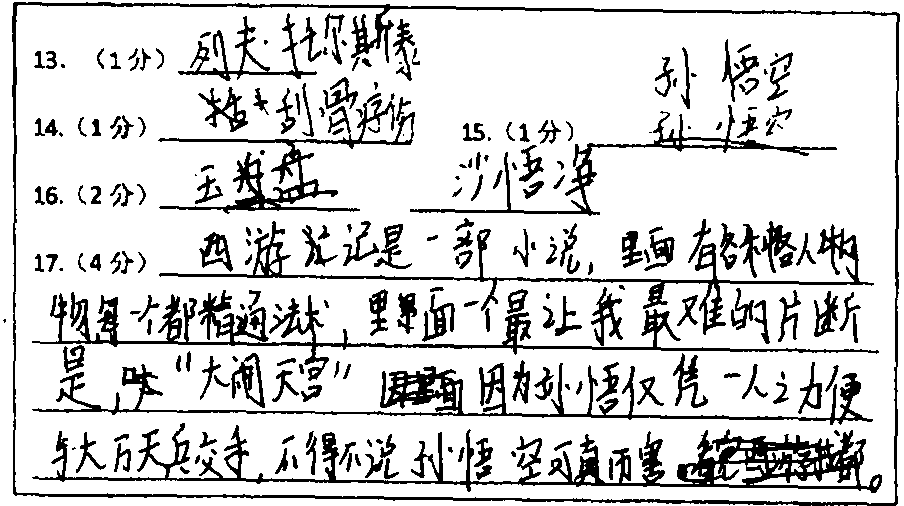 13.（1分）列夫·托尔斯泰
孙悟空
14.（1分）刮骨疗伤 15.（1分）孙悟空
16.（2分）玉 盘 沙悟净
17.（4分）西游记记是一部小说，里面有各种人物
物每个都精通法术，里面一个最让我最难的片断
是，"大闹天宫" 因为孙悟仅凭一人之力便
与大万天兵交手，不得不说孙悟空可真而害。